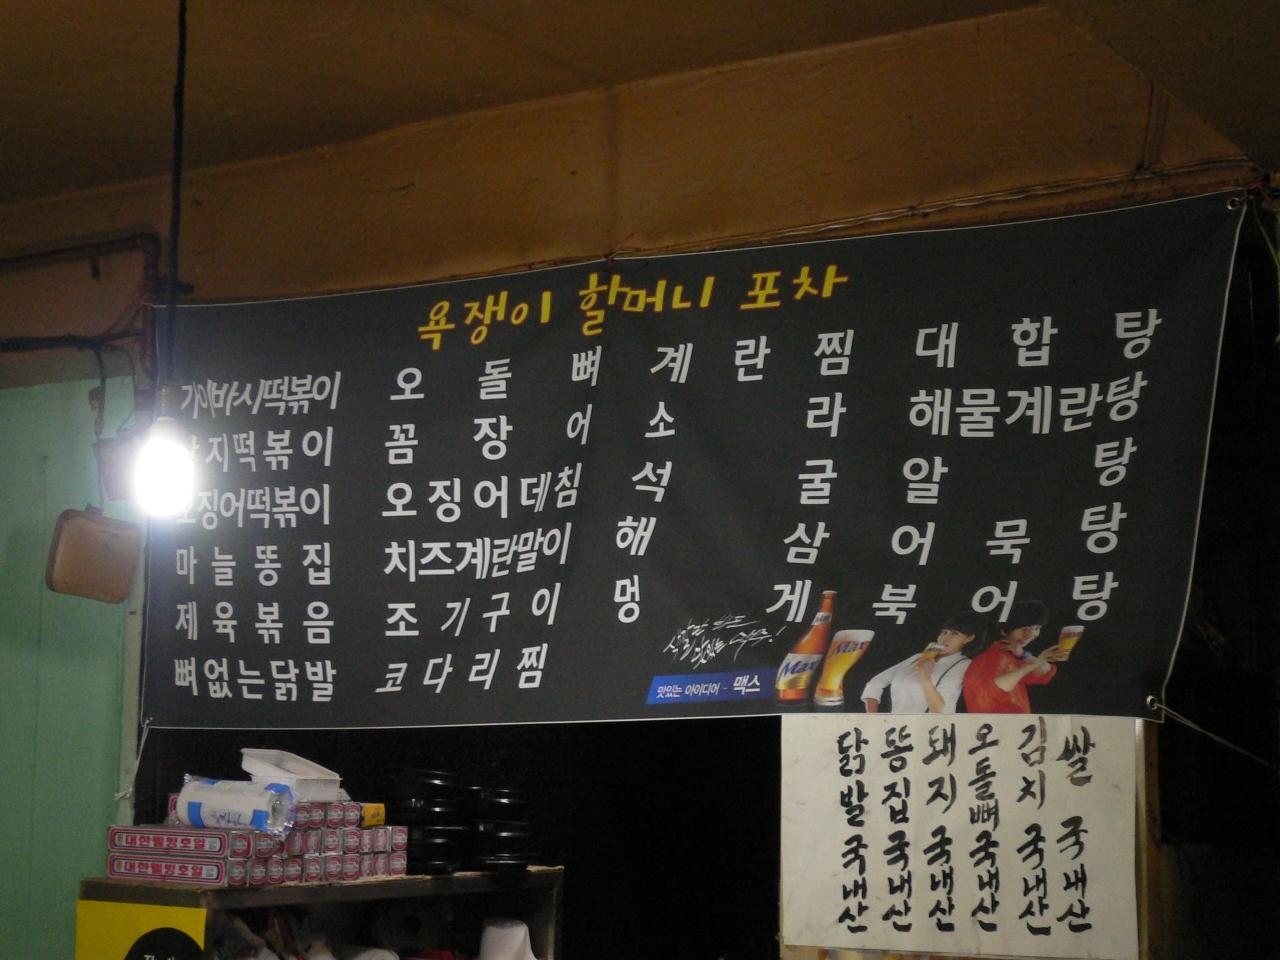 욕쟁이 할머니 포차
가이바시떡볶이
지떡볶이
오징어떡볶이
마늘똥집
제육볶음
뼈없는닭발
오돌뼈
꼼장어
오징어데침
치즈계란말이
조기구이
코다리찜
계란찜
소라
석굴
해삼
멍게
대합탕
해물계란탕
알탕
어묵탕
북어탕
맛있는 아이디어 - 맥스
Max
Max
닭발 국내산
똥집 국내산
돼지 국내산
오돌뼈 국내산
김치 국내산
쌀 국내산
대한웰빙호일
대한웰빙호일